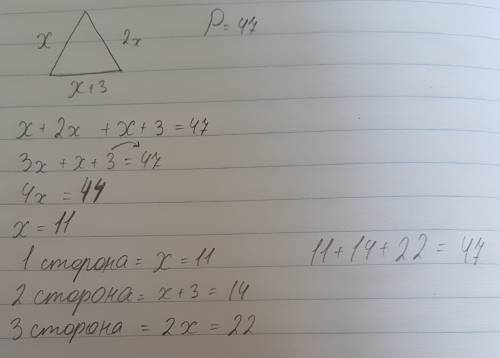 x 2x P = 47
x+3
x + 2x + x + 3 = 47
3x + x + 3 = 47
4x = 44
x = 11
1 сторона = x = 11 11 + 14 + 22 = 47
2 сторона = x + 3 = 14
3 сторона = 2x = 22